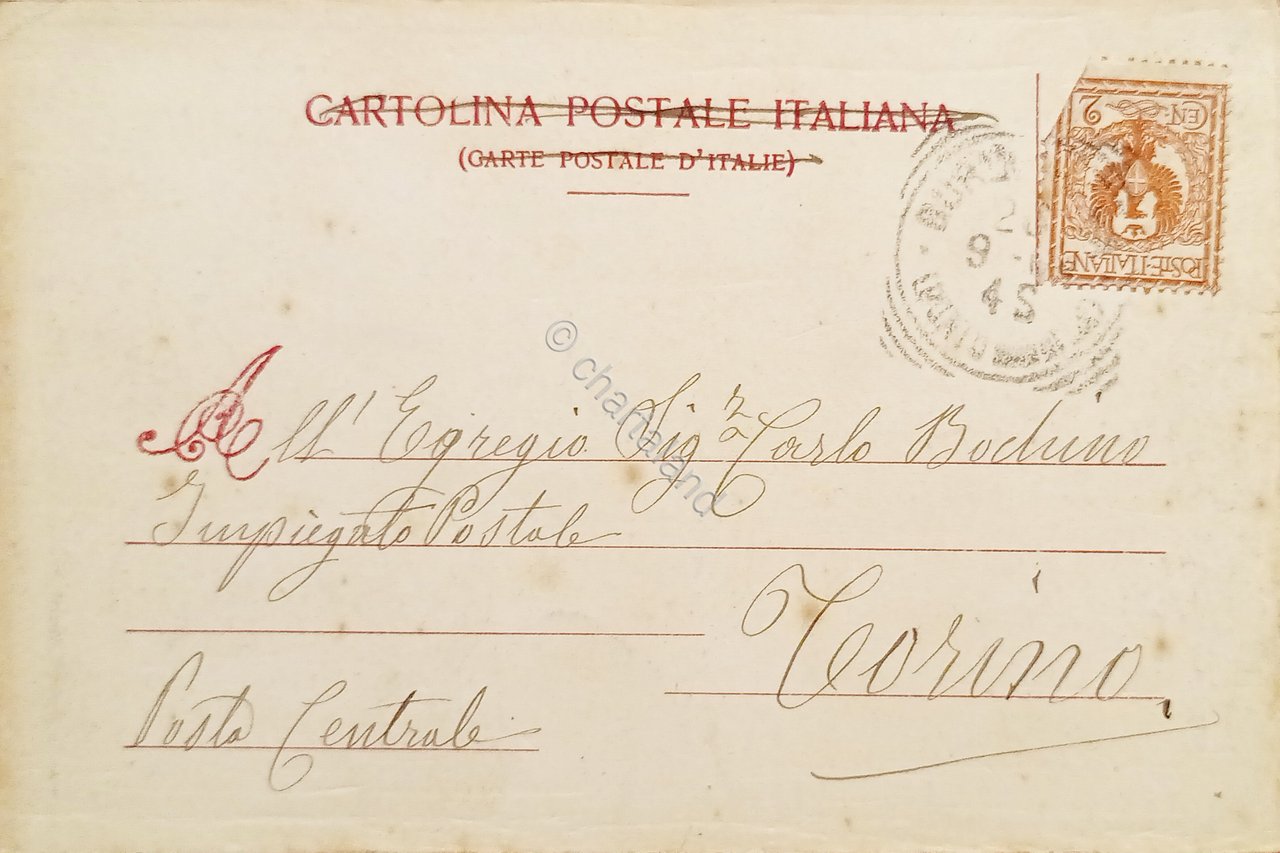 CARTOLINA POSTALE ITALIANA
(CARTE POSTALE D'ITALIE)
CEN. 2
POSTE-ITALIANE
9
45
© chartaland
All' Egregio Sigr Carlo
Impiegato Postale
Torino
Posta Centrale